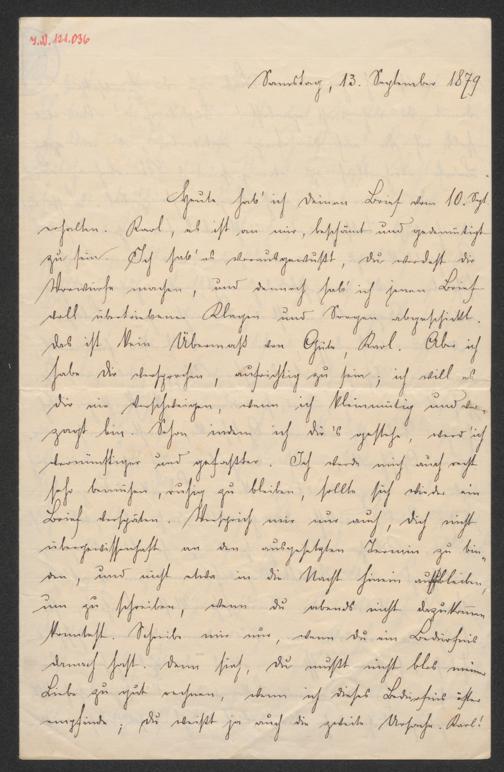 I.N. 121.036
Samstag, 13. September 1879
Heute hab' ich deinen Brief vom 10. Sept.
erhalten. Karl, es ist an mir, beschämt und gedemütigt
zu sein. Ich hab' es vorausgewußt, du werdest dir
Vorwürfe machen, und dennoch hab' ich jenen Brief
voll übertriebener Klagen und Sorgen abgeschickt.
Das ist kein Übermaß von Güte, Karl. Aber ich
habe dir versprochen, aufrichtig zu sein; ich will es
dir nie verschweigen, wenn ich kleinmütig und ver-
zagt bin. Schon indem ich dir's gestehe, werd' ich
vernünftiger und gefaßter. Ich werde mich auch recht
sehr bemühen, ruhig zu bleiben, sollte sich wieder ein
Brief verspäten. Versprich mir nur auch, dich nicht
übergewissenhaft an den ausgesetzten Termin zu bin-
den, und nicht etwa in die Nacht hinein aufbleiben,
um zu schreiben, wenn du abends nicht dazukommen
konntest. Schreibe mir nur, wenn du ein Bedürfnis
darnach hast. Denn sieh, du mußt nicht blos meiner
Liebe zu gut rechnen, wenn ich dieses Bedürfnis öfter
empfinde; du weißt ja auch die zweite Ursache. Karl!